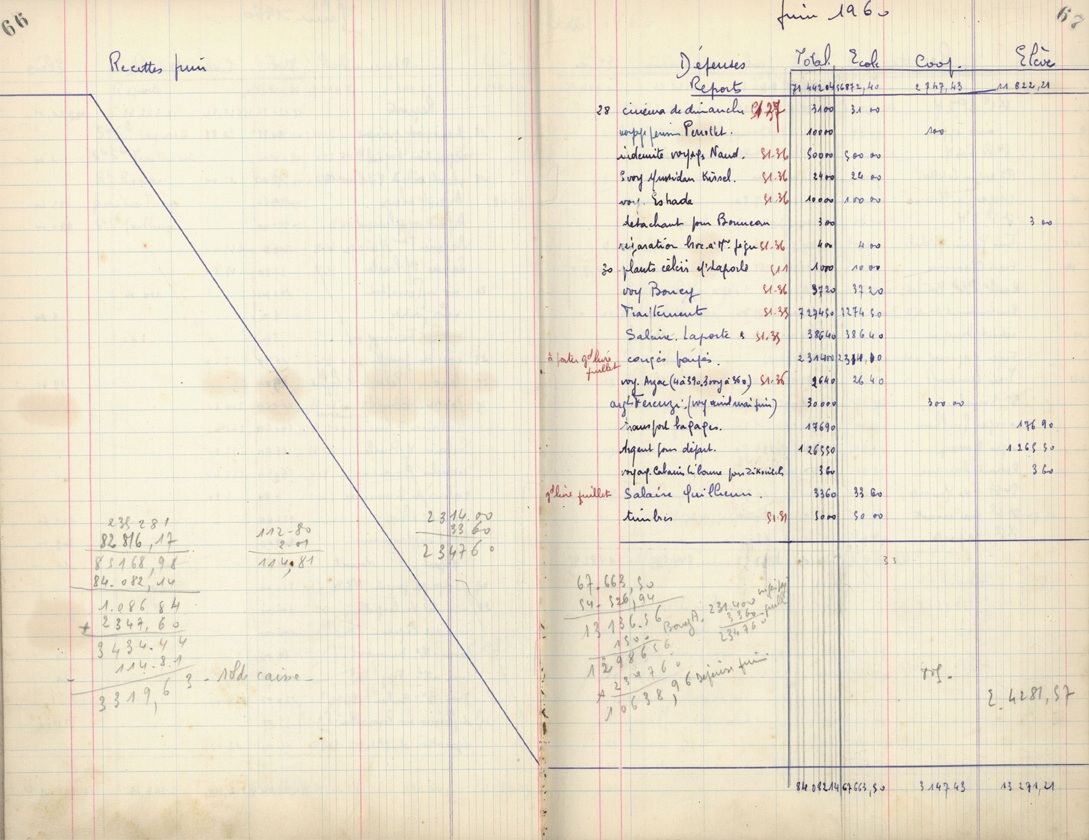 66
Recettes juin
235 281
82816,17
83168,98
84.082,14
1.086 84
+ 2347,60
3434.44
114.81
- solde caisse -
33196 3
112-80
2.01
114,81
2314.00
33 60
23476 0
67
juin 1960
Dépenses Total Ecole Coop. Elève
Report 71 442 04 56872,40 2 747,43 11 822,21
28 cinéma de dimanche 3100 31 00
voyage Perrollet. 10000 100
indemnité voyage Naud. 51.36 50000 500 00
voy Kissel. 51.36 2400 24 00
voy. Eshade 51.36 10000 100 00
détachant pour Bonneau 300 3 00
réparation 51.36 400 4 00
30 plants céleri Laporte 51.1 1000 10 00
voy Boucy 51.36 3720 37 20
Traitement 51.35 727450 7274 50
Salaire Laporte 51.35 38640 386 40
à porter gd livre juillet congés payés. 231400 2314,00
voy. Azac (4 à 390, 3 voy à 360) 51.36 2640 26 40
(voy avril mai juin) 30000 300 00
transport bagages. 17690 176 90
Argent pour départ. 126550 1265 50
360 3 60
gd livre juillet Salaire Guilheun. 3360 33 60
timbres 51.51 5000 50 00
33
67.663,50
54.526,94
13136.56
150.
12986 56
23476 0
10638,96 Dépenses juin.
231.400
3360
234760
juillet
2. 4281,57
84 082 14 67663,50 3 147 43 13 271,21